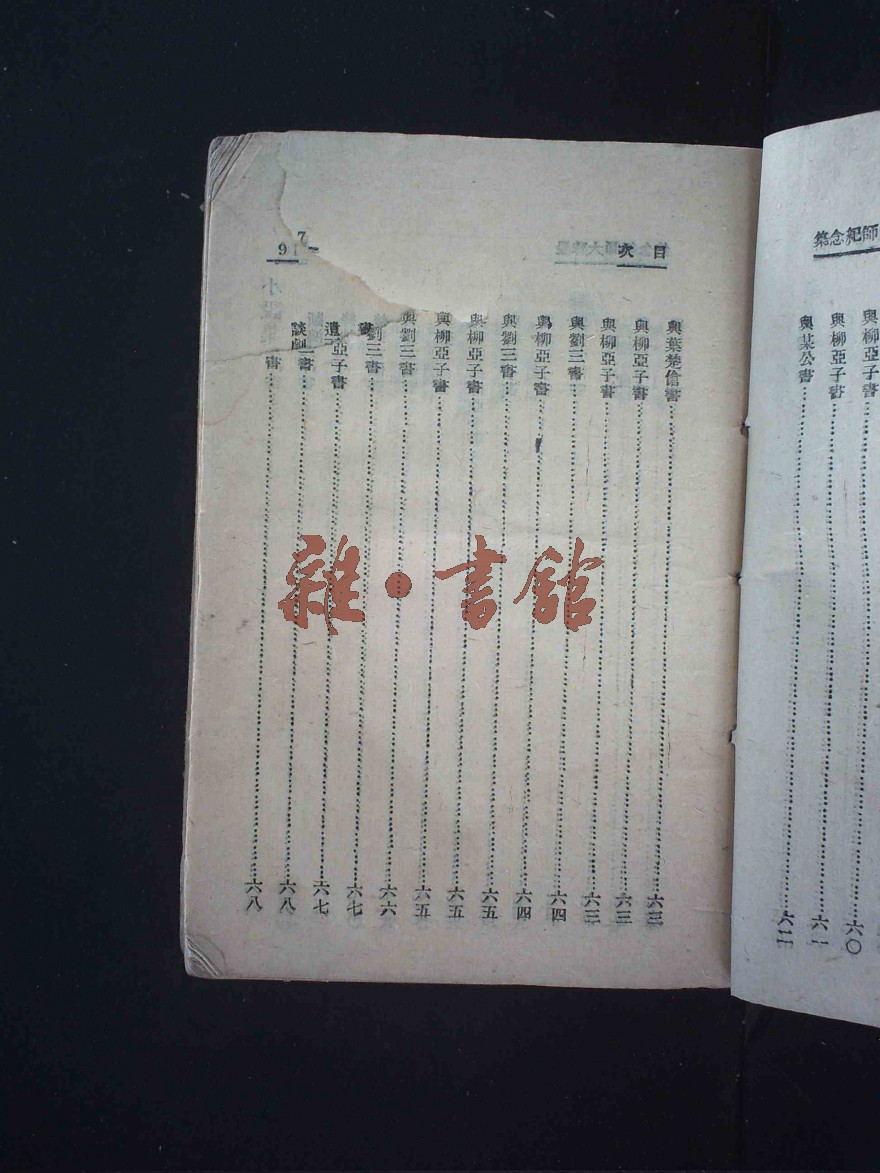 師紀念集
與柳亞子書……六〇
與柳亞子書……六一
與某公書……六二
目次
與葉楚傖書……六三
與柳亞子書……六三
與柳亞子書……六三
與劉三書……六四
與柳亞子書……六四
與劉三書……六五
與柳亞子書……六五
與柳亞子書……六五
與劉三書……六六
劉三書……六七
亞子書……六七
書……六八
書……六八
雜·書館